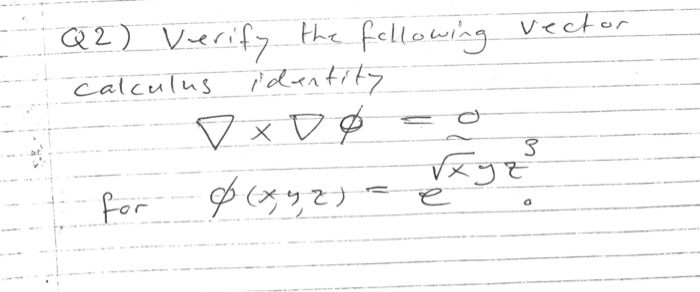 Q2) Verify the following vector
calculus identity
∇ × ∇ϕ = 0̰
for ϕ(x,y,z) = e^{√x y z³}.